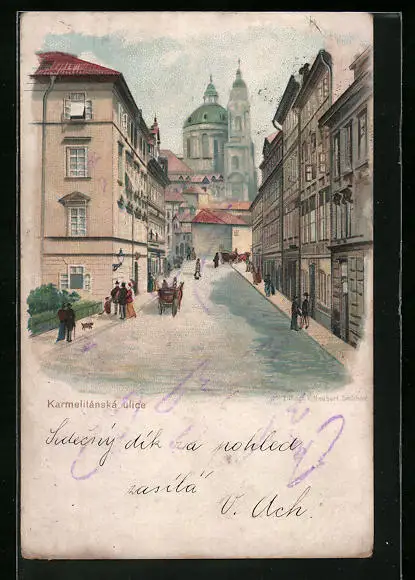 Karmelitánská ulice
Srdečný dík za pohled
zasílá
V. Ach.